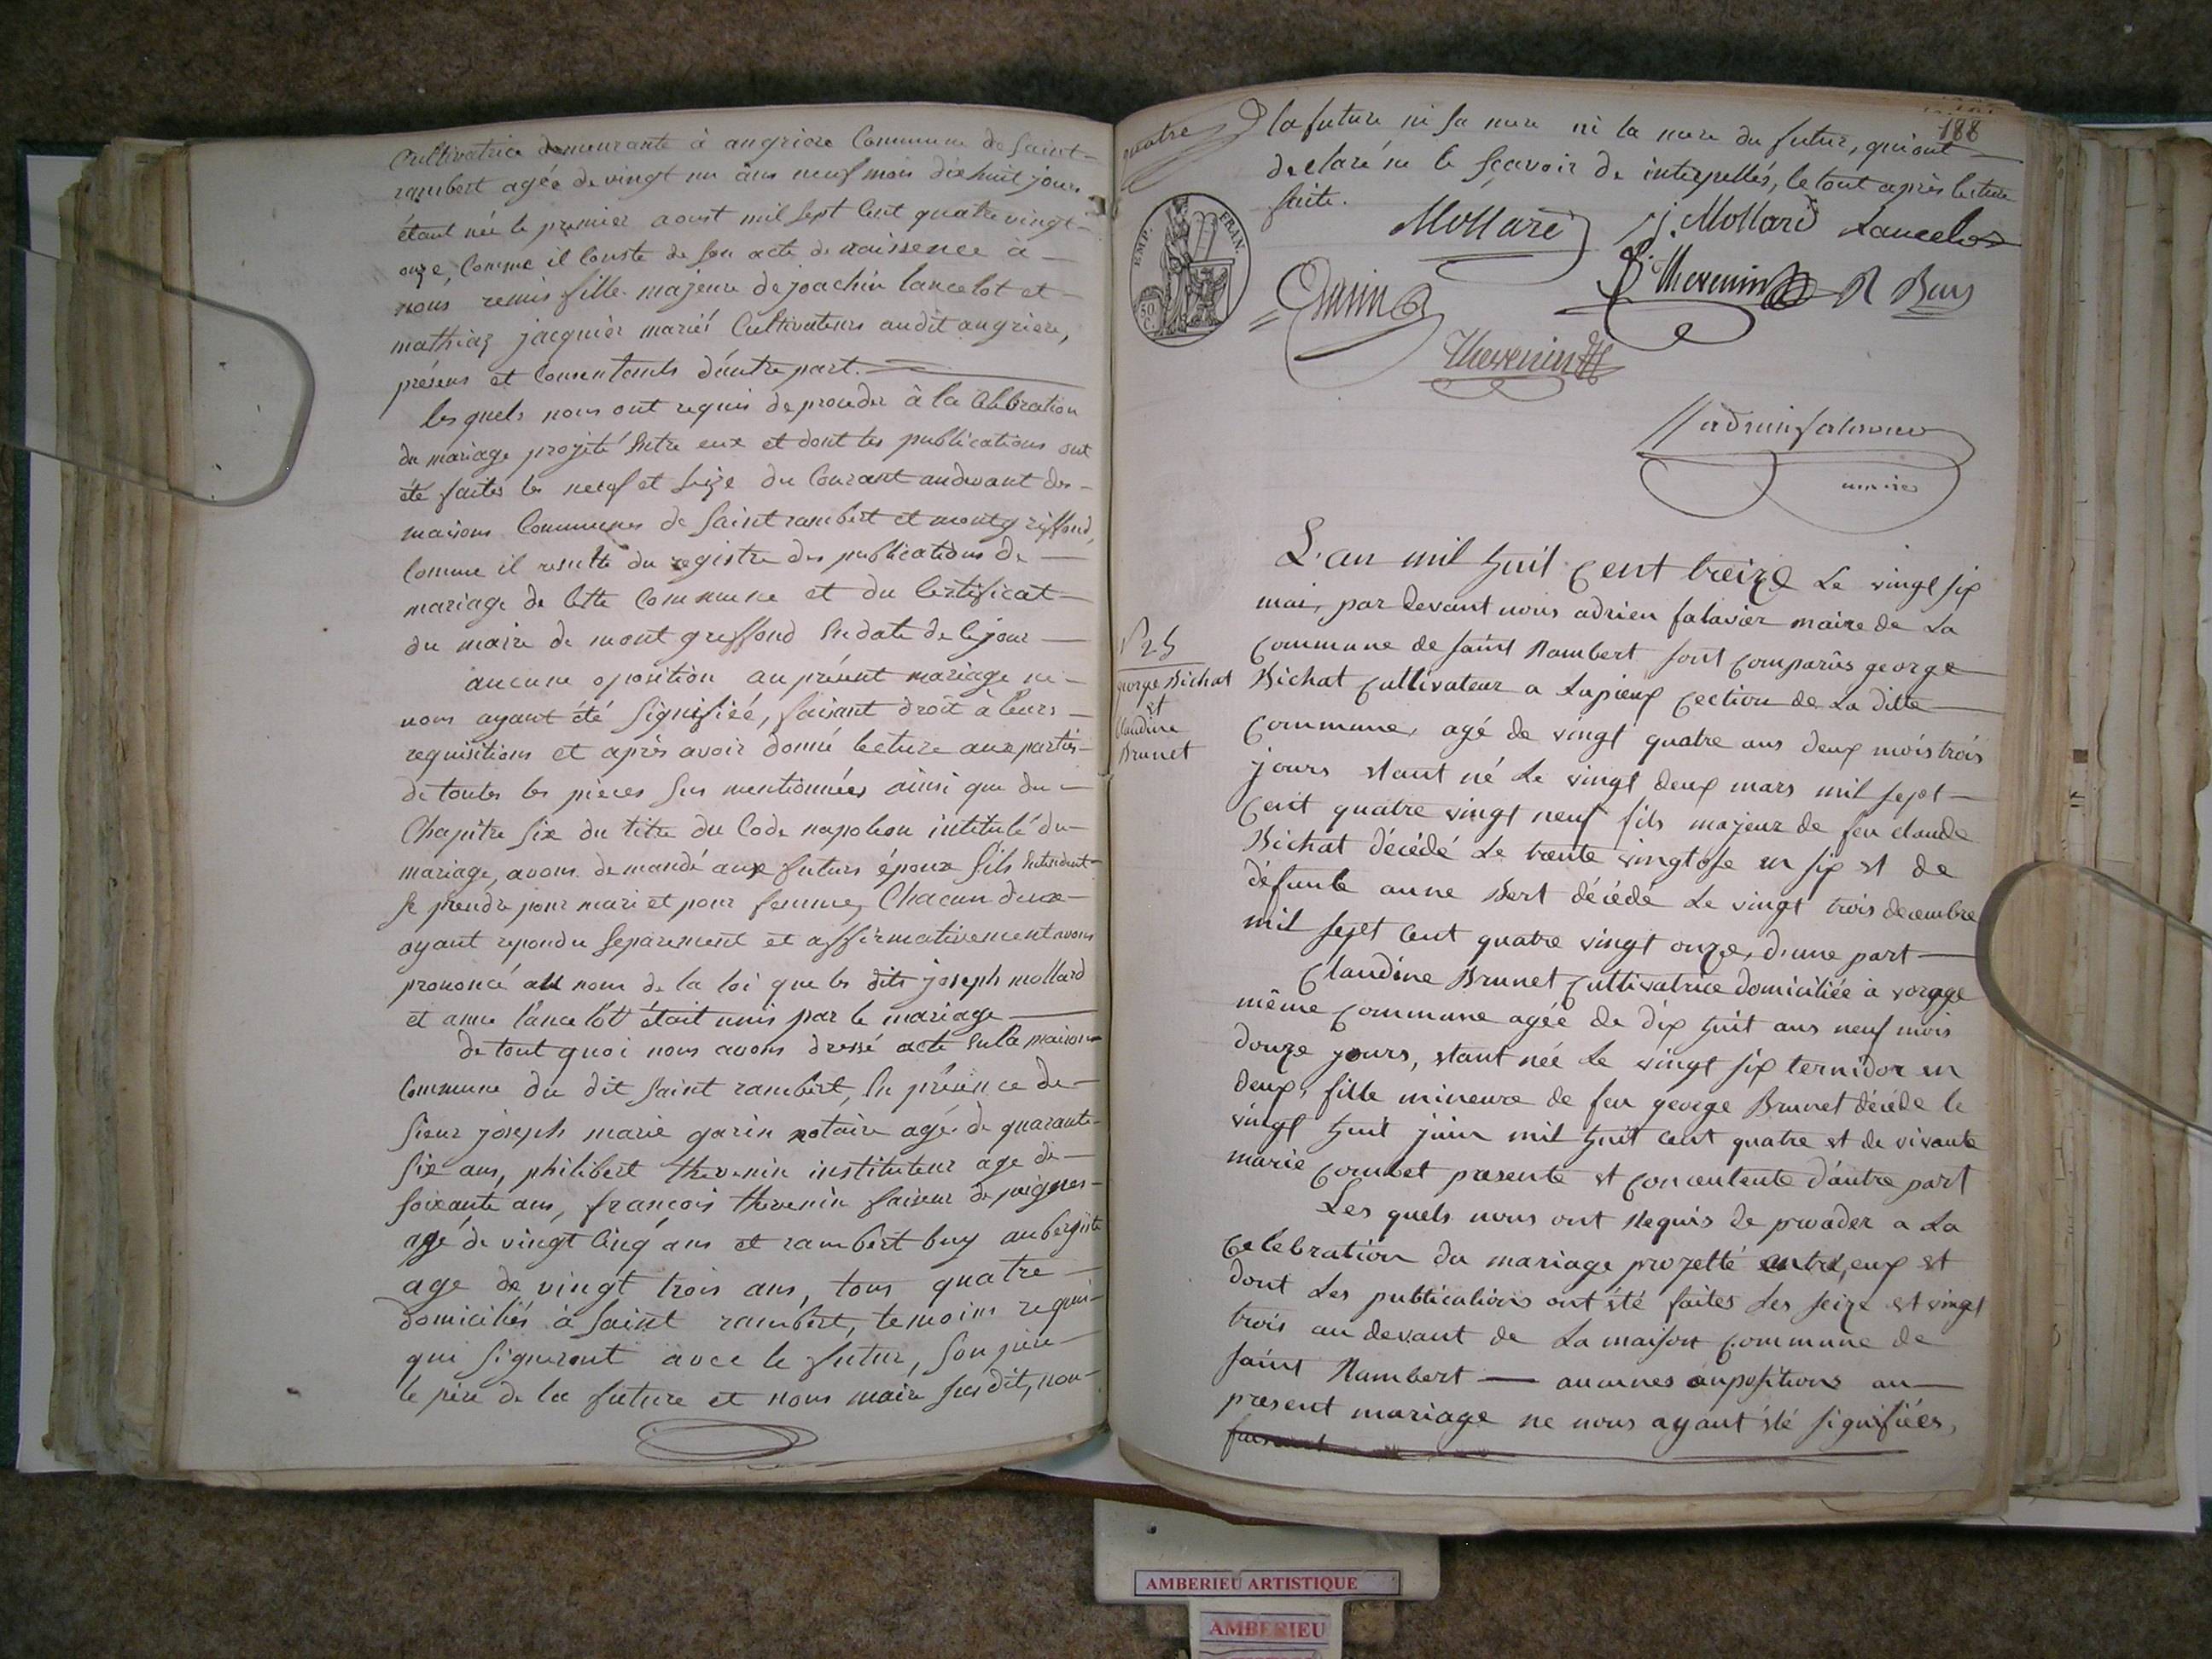 Cultivatrice demeurante à angriere Commune de Saint-
rambert agée de vingt un âns neuf mois dix huit jours
étant née le premier aoust mil sept cent quatre vingt-
onze, Comme il Conste de son acte de naissence à -
nous remis fille majeure de joachin lancelot et -
mathiaz jacquier mariés Cultivateurs audit angriere,
présens et Consentants d'autre part.
les quels nous ont requis de proceder à la Celebration
du mariage projeté entre eux et dont les publications ont
été faites les neuf et seize du Courant audevant des -
maisons Communes de Saint rambert et montgriffond,
Comme il resulte du registre des publications de -
mariage de Cette Commune et du Certificat -
du maire de mont greffond en date de Ce jour -
aucune oposition au présent mariage ne -
nous ayant été signifiée, faisant droit à leurs -
requisitions et après avoir donné lecture aux parties -
de toutes les pièces sus mentionnées ainsi que du -
Chapitre six du titre du Code napoleon intitulé du -
mariage, avons demandé aux futurs époux s'ils entendent
se prendre pour mari et pour femme, Chacun deux -
ayant repondu Separement et affirmativement avons
prononcé au nom de la loi que les dits joseph mollard
et anne lancelot était unis par le mariage
de tout quoi nous avons dressé acte en la maison
Commune du dit Saint rambert, en présence de -
Sieur joseph marie garin notaire agé de quarante-
six ans, philibert thevenin instituteur age de -
soixante ans, françois thevenin faiseur de peignes -
agé de vingt Cinq ans et rambert buy aubergiste
age de vingt trois ans, tous quatre -
domiciliés à Saint rambert, temoins requis -
qui signeront avec le futur, son père -
le père de la future et nous maire susdit, non -
188
la future ni sa mere ni la mere du futur, qui ont -
declaré ne le sçavoir de interpellés, le tout après lecture
faite.
EMP. FRAN.
50 C.
Mollard j. Mollard Lancelot
Garin P. Thevenin R Buy
Thevenin
maire
L'an mil huit cent treize Le vingt six
mai, par devant nous adrien falavier maire de La
commune de saint Rambert sont comparûs george
Bichat cultivateur a Lupieux cection de La ditte
commune, agé de vingt quatre ans deux mois trois
jours etant né Le vingt deux mars mil sept -
cent quatre vingt neuf fils majeur de feu claude
Bichat décédé Le trente vingtose en six et de
défunte anne Bert décédé Le vingt trois decembre
mil sept cent quatre vingt onze, d'une part
N° 25
george Bichat
et
Claudine
Brunet
Claudine Brunet cultivatrice domiciliée à vorage
même commune agée de dix huit ans neuf mois
douze jours, etant née Le vingt six termidor en
deux, fille mineure de feu george Brunet décédé le
vingt huit juin mil huit cent quatre et de vivante
marie Combet presente et concentente d'autre part
Les quels nous ont Requis de proceder a La
celebration du mariage projetté entre, eux et
dont Les publications ont été faites Les seize et vingt
trois au devant de La maison commune de
saint Rambert — aucunes oupositions au
present mariage ne nous ayant été signifiées,